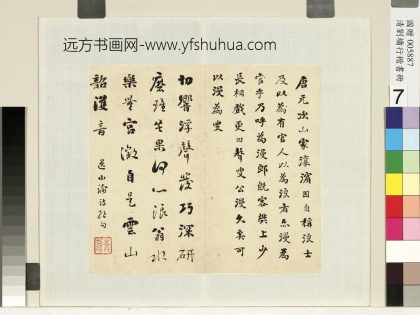 远方书画网-www.yfshuhua.com
唐元次山家瀼濱因自稱浪士
及以為有官人以為浪者亦漫為
官乎乃呼為漫郎既客樊上少
長相戲更曰聱叟公漫久矣可
以漫為叟
切響浮聲發巧深研
摩雖苦果何心浪翁水
樂無宮徵自是雲山
韶濩音
遺山論詩絕句
國贈 005887
清劉墉行楷書冊
7